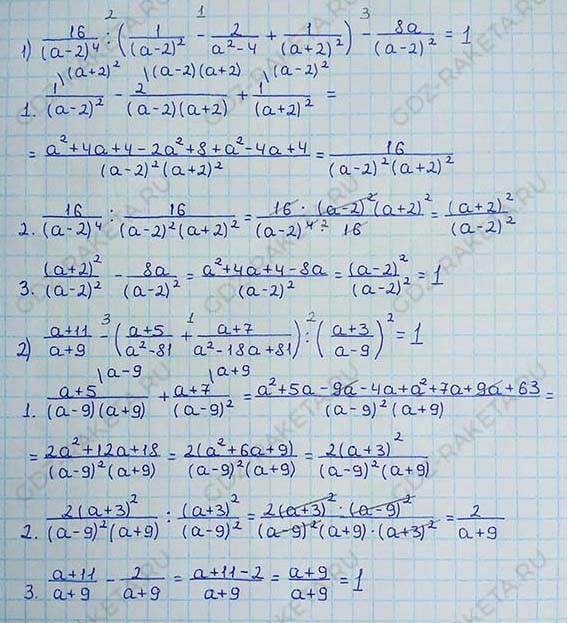 1) 16/(a-2)⁴ : (1/(a-2)² - 2/(a²-4) + 1/(a+2)²) - 8a/(a-2)² = 1
1. 1\(a+2)²/(a-2)² - 2\(a-2)(a+2)/((a-2)(a+2)) + 1\(a-2)²/(a+2)² =
= (a²+4a+4-2a²+8+a²-4a+4)/((a-2)²(a+2)²) = 16/((a-2)²(a+2)²)
2. 16/(a-2)⁴ : 16/((a-2)²(a+2)²) = (16·(a-2)²(a+2)²)/((a-2)⁴ ² 16) = (a+2)²/(a-2)²
3. (a+2)²/(a-2)² - 8a/(a-2)² = (a²+4a+4-8a)/(a-2)² = (a-2)²/(a-2)² = 1
2) (a+11)/(a+9) - ((a+5)/(a²-81) + (a+7)/(a²-18a+81)) : ((a+3)/(a-9))² = 1
1. (a+5)\a-9/((a-9)(a+9)) + (a+7)\a+9/(a-9)² = (a²+5a-9a-4a+a²+7a+9a+63)/((a-9)²(a+9)) =
= (2a²+12a+18)/((a-9)²(a+9)) = 2(a²+6a+9)/((a-9)²(a+9)) = 2(a+3)²/((a-9)²(a+9))
2. 2(a+3)²/((a-9)²(a+9)) : (a+3)²/(a-9)² = (2(a+3)²·(a-9)²)/((a-9)²(a+9)·(a+3)²) = 2/(a+9)
3. (a+11)/(a+9) - 2/(a+9) = (a+11-2)/(a+9) = (a+9)/(a+9) = 1
GDZ-RAKETA.RU